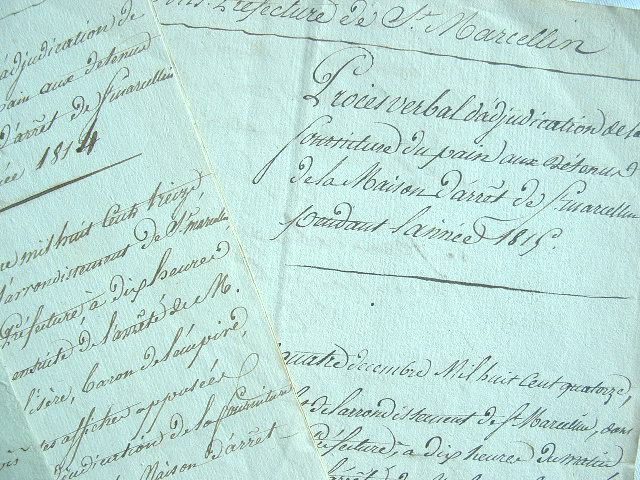 Préfecture de St. Marcellin
Procès verbal d'adjudication de la
fourniture du pain aux détenus
de la Maison d'arrêt de St marcellin
pendant l'année 1815.
quatre décembre Mil huit Cent quatorze,
de l'arrondissement de St. Marcellin, dans
préfecture, à dix heures du matin
d'adjudication de
pain aux détenus
d'arrêt de St marcellin
1814
mil huit Cent treize
l'arrondissement de St. marcellin
Préfecture, à dix heures
ensuite de l'arrêté de M.
l'isère, baron de l'empire,
affiches apposées
adjudication de la fourniture
Maison d'arrêt